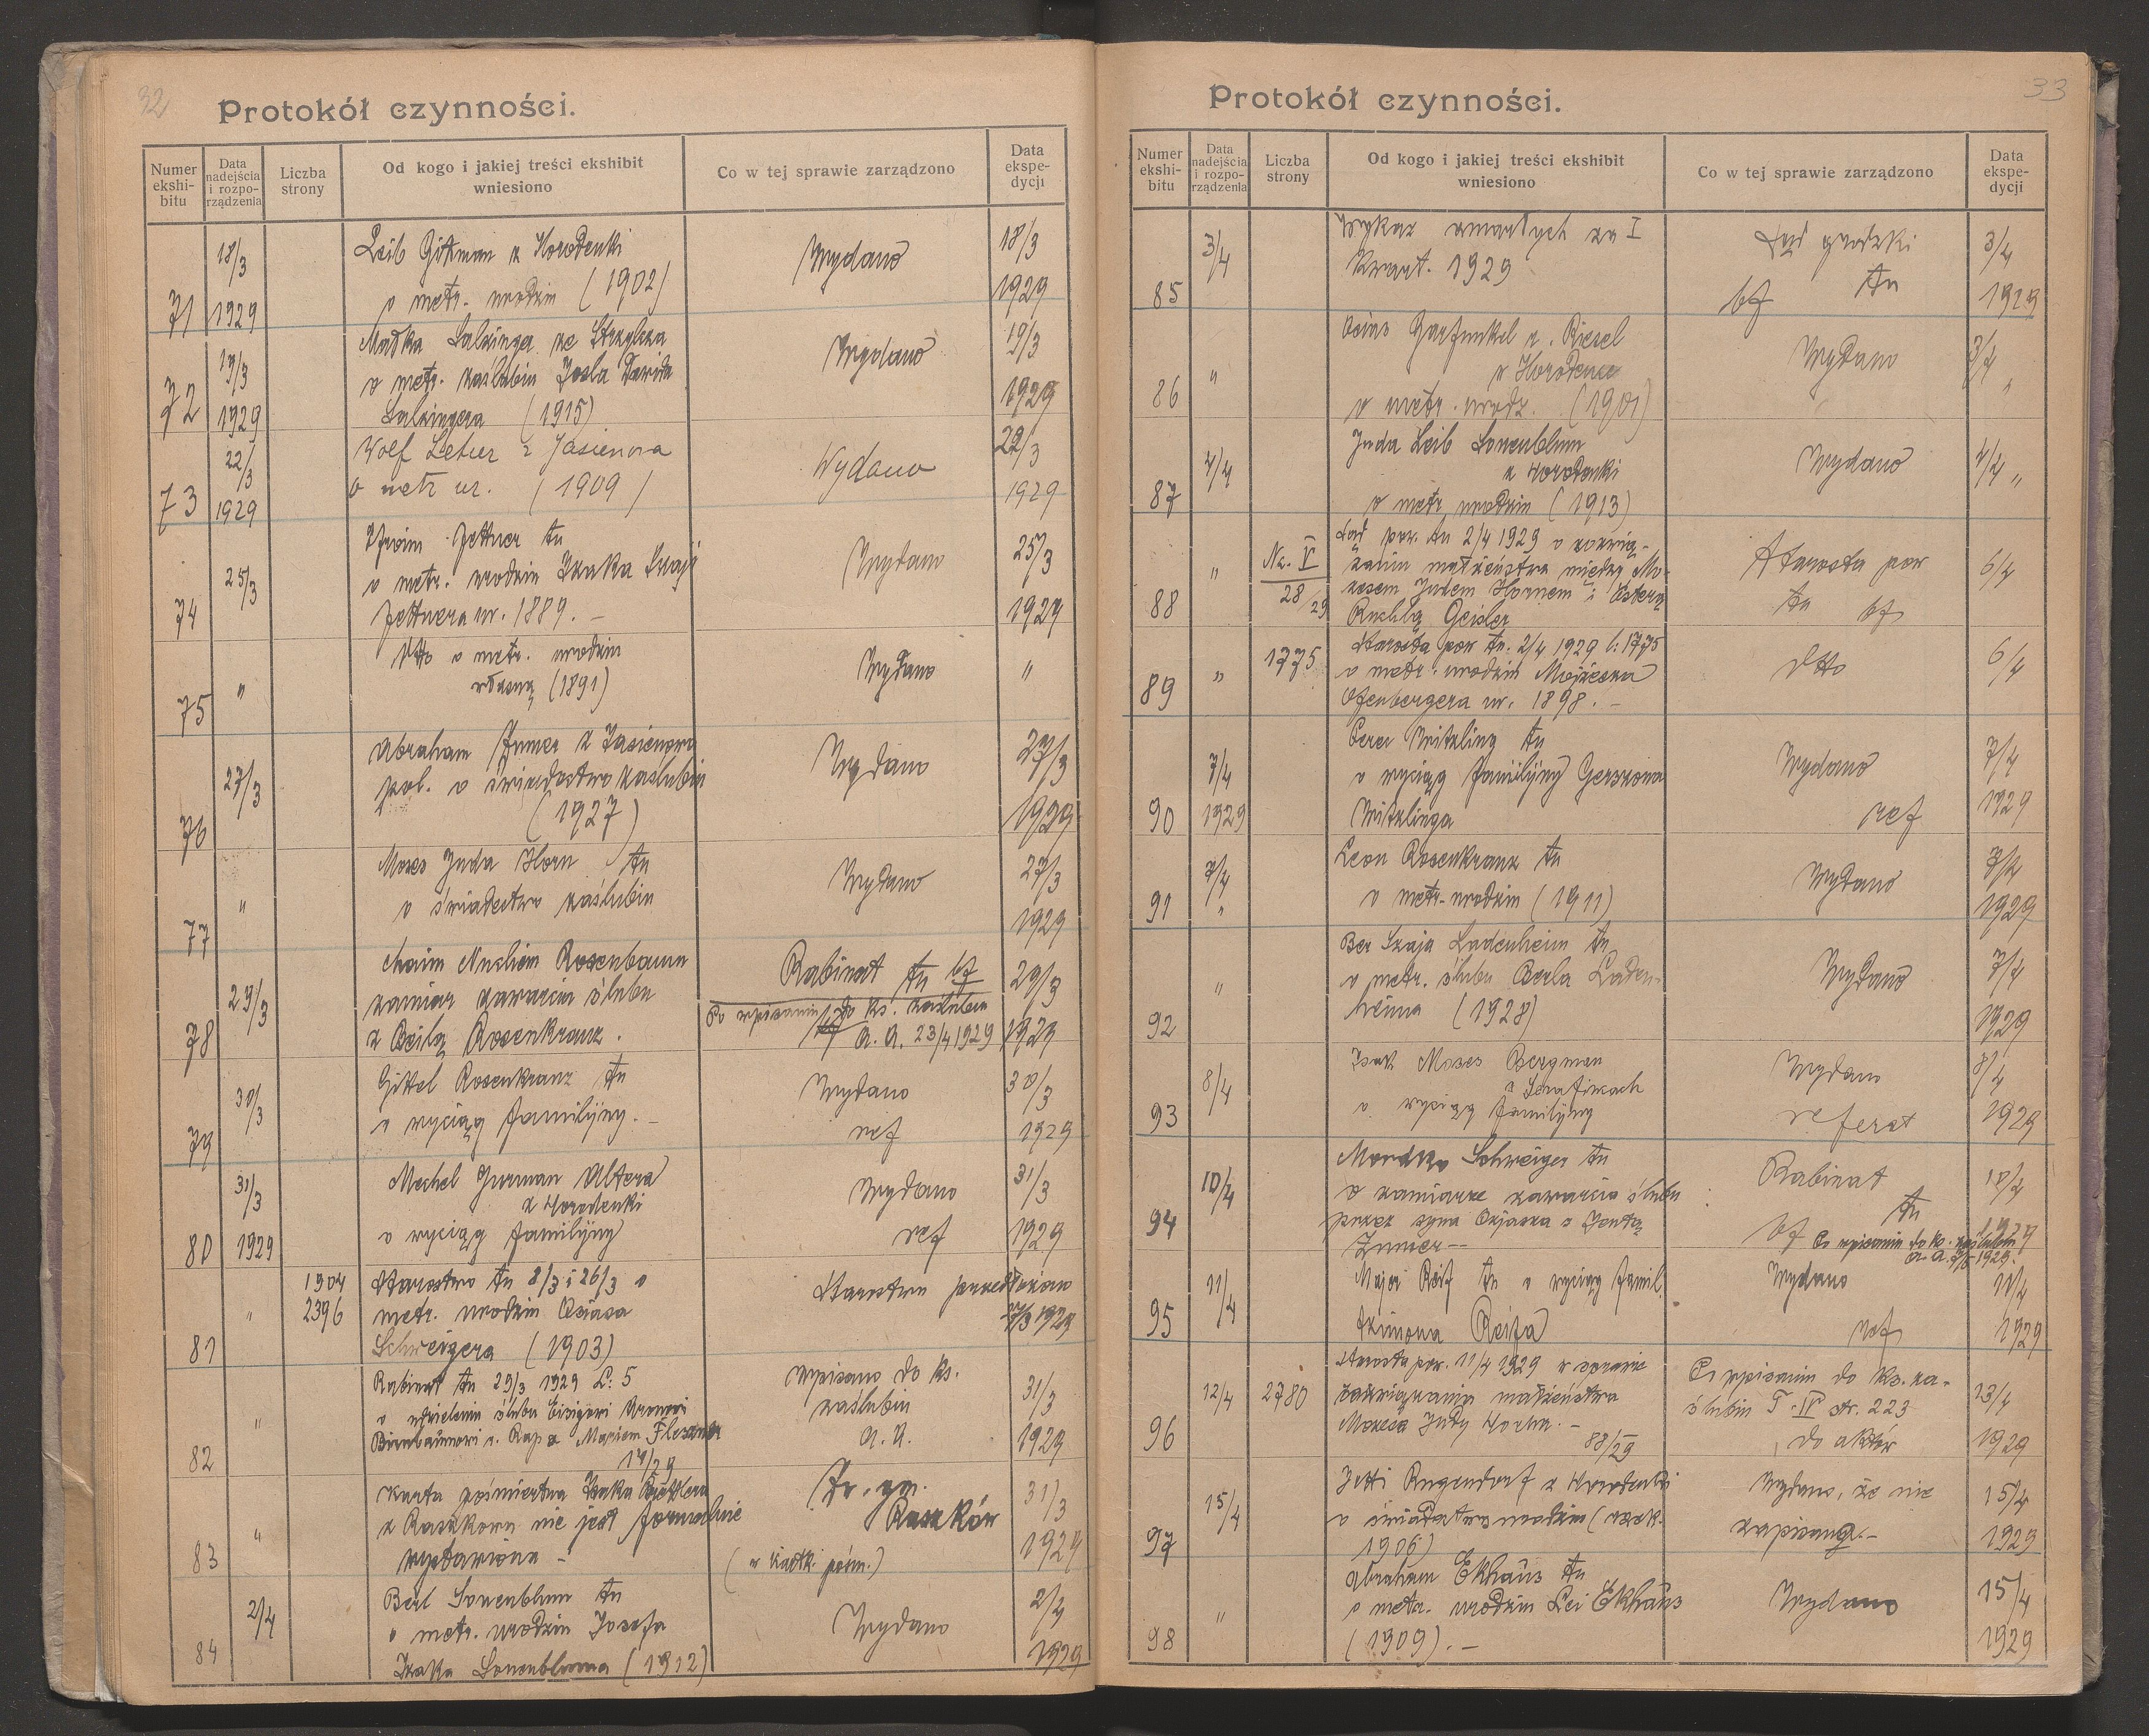 32
Protokół czynności.
Numer ekshi-bitu
Data nadejścia i rozpo-rządzenia
Liczba strony
Od kogo i jakiej treści ekshibit wniesiono
Co w tej sprawie zarządzono
Data ekspe-dycji
71 18/3 1929 Leib Gitman z Horodenki Wydano 18/3 1929
o metr. urodzin (1902)
72 19/3 1929 Matka Salzinga ze Wydano 19/3 1929
o metr. zaślubin Josla Dawida
Salzingera (1915)
73 22/3 1929 Wolf z Jasienowa Wydano 22/3 1929
o metr ur. (1909)
74 25/3 Efroim Jettner tu Wydano 25/3 1929
o metr. urodzin Izaka Szaji
Jettnera ur. 1889. –
75 " Dtto o metr. urodzin Wydano "
własną (1891)
76 27/3 Abraham z Jasienowa Wydano 27/3 1929
pol. o świadectwo zaślubin
(1927)
77 " Moses Juda Horn tu Wydano 27/3 1929
o świadectwo zaślubin
78 29/3 Chaim Nuchim Rosenbaum Rabinat tu bf 29/3 1929
zamiar zawarcia ślubu Po wpisaniu do ks. zaślubin
z Beilą Rosenkranz. a. a. 23/4 1929
79 30/3 Gittel Rosenkranz tu Wydano 30/3 1929
o wyciąg familijny. – ref
80 31/3 1929 Mechel Jurman Altera Wydano 31/3 1929
z Horodenki
o wyciąg familijny ref
81 " 1904 2396 Starostwo tu 8/3 i 26/3 o Starostwu przedłożono
metr. urodzin Osiasa 1929
Schweigera (1903)
82 " Rabinat tu 29/3 1929 L: 5 Wpisano do ks. 31/3 1929
o udzieleniu ślubu Eisigowi Aronowi zaślubin
Birnbaumowi Rap z a. a.
14/29
83 " Karta pośmiertna Izaka 31/3 1929
z Raszkowa nie jest formalnie Raszków
wystawiona – (w kartki pośm.)
84 2/4 Berl Sonenblum tu Wydano 2/4 1929
o metr. urodzin Josefa
Izaka Sonenbluma (1912)
33
Protokół czynności.
Numer ekshi-bitu
Data nadejścia i rozpo-rządzenia
Liczba strony
Od kogo i jakiej treści ekshibit wniesiono
Co w tej sprawie zarządzono
Data ekspe-dycji
85 3/4 Wykaz zmarłych za I Sąd grodzki 3/4 1929
Kwart. 1929 bf tu
86 " Osias Garfunkel v. Riesel Wydano 3/4 "
z Horodence
o metr. urodz. (1901)
87 4/4 Juda Leib Sonenblum Wydano 4/4 "
z Horodenki
o metr. urodzin (1913)
88 " Nc. V 28/29 Sąd pow. tu 2/4 1929 o rozwią- Starosta pow 6/4
zaniu małżeństwa między Mo- tu bf
zesem Judem Hornem i Esterą
Ruchlą Geisler
89 " 1775 Starosta pow tu. 2/4 1929 l: 1775 dtto 6/4
o metr. urodzin Mojżesza
Ofenbergera ur. 1898. –
90 7/4 1929 Witzling tu Wydano 7/4 1929
o wyciąg familijny Gerszona
Witzlinga ref
91 7/4 " Leon Rosenkranz tu Wydano 7/4 1929
o metr. urodzin (1911)
92 " Ber Szaja Ladenheim tu Wydano 7/4 1929
o metr. ślubu Berla Laden-
heima (1928)
93 8/4 Isak Moses Bergman Wydano 8/4 1929
z Serafincach
o wyciąg familijny referat
94 10/4 Mordko Schweiger tu Rabinat 10/4 1929
o zamiarze zawarcia ślubu tu
przez syna Osjasza z Jentą bf Po wpisaniu do ks. zaślubin
-- a. a. 1929.
95 11/4 Majer Reif tu o wyciąg famil. Wydano 11/4 1929
Szimona Reifa ref
96 12/4 2780 Starosta pow. 11/4 1929 w sprawie Po wpisaniu do ks. za- 13/4 1929
rozwiązania małżeństwa ślubin T. IV str. 223
Mozesa Judy Horna. – do aktów
88/29
97 15/4 Jetti Rugendorf z Horodenki Wydano, że nie 15/4 1929
o świadectwo urodzin ( zapisana. –
1906)
98 " Abraham Ekhäus tu Wydano 15/4 1929
o metr. urodzin Lei Ekhäus
(1909). –